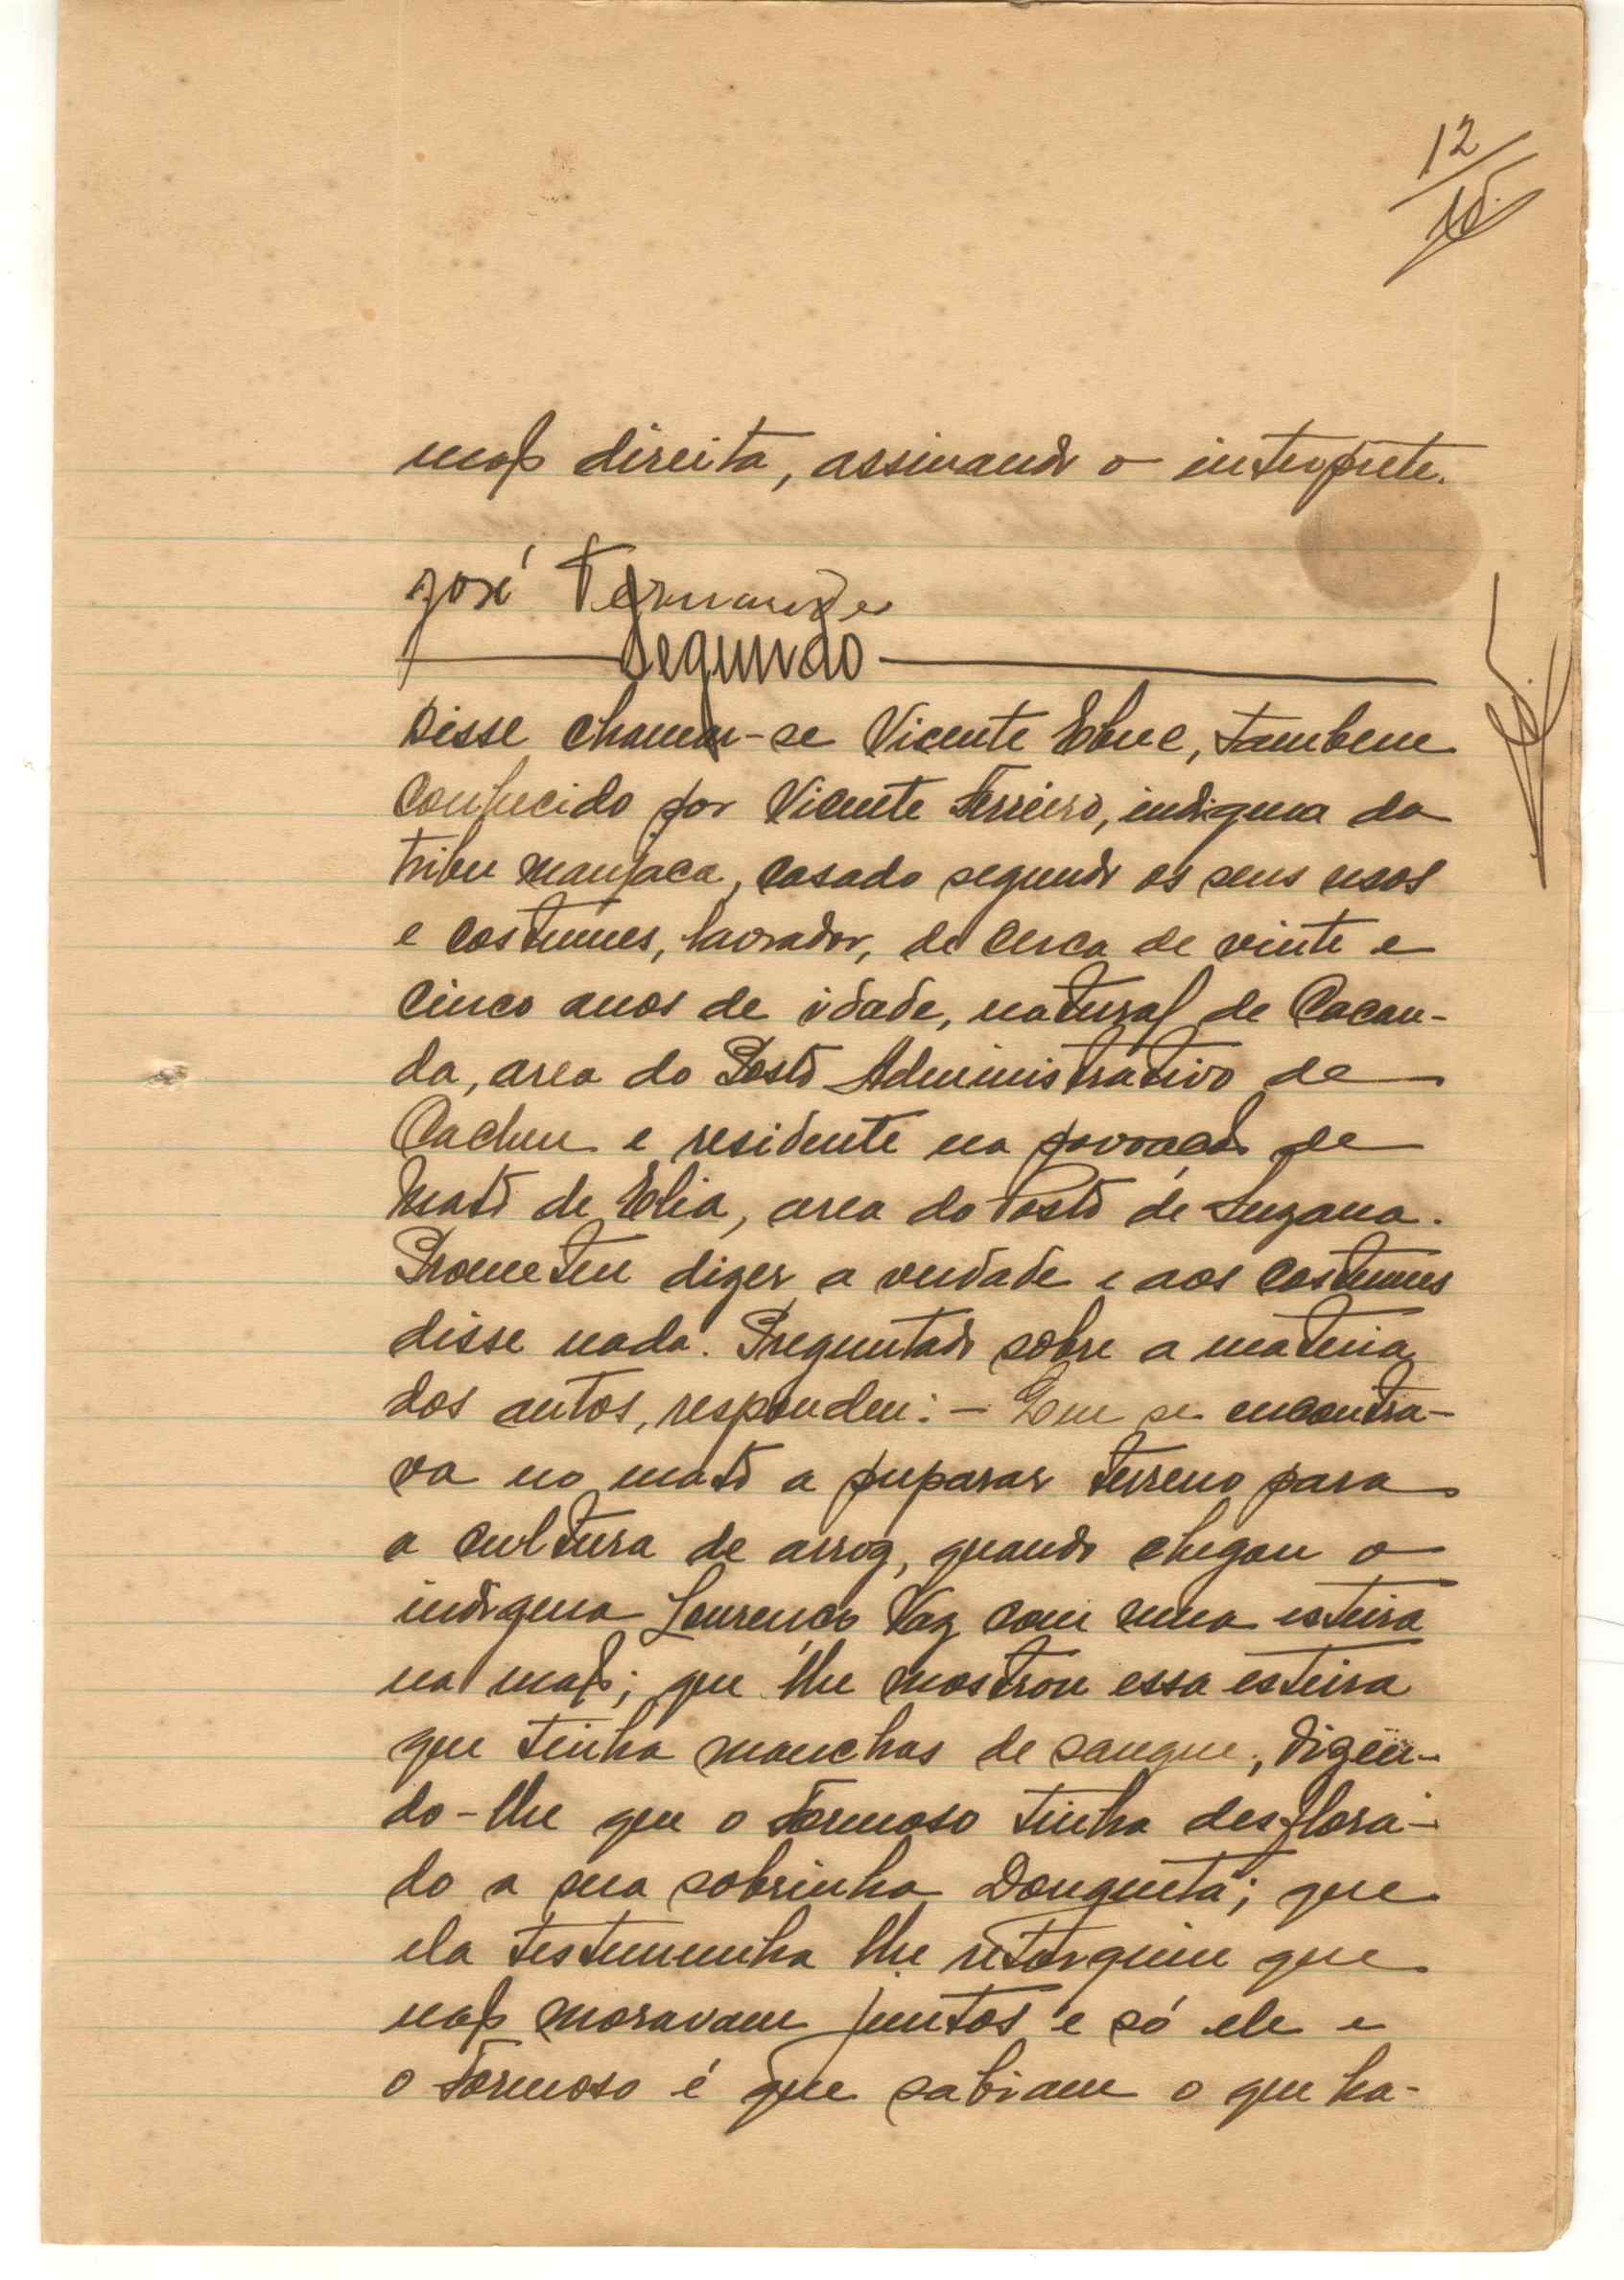 12
mão direita, assinando o interprete.
José Fernandes
Segundo
Disse chamar-se Vicente, tambem
conhecido por Vicente Ferreiro, indigena da
tribu manjaca, casado segundo os seus usos
e costumes, lavrador, de cerca de vinte e
cinco anos de idade, natural de Cacan-
da, area do Posto Administrativo de
Cacheu e residente na povoação de
Mato de Elia, area do Posto de Suzana.
Prometeu dizer a verdade e aos costumes
disse nada. Preguntado sobre a materia
dos autos, respondeu: — Que se encontra-
va no mato a preparar terreno para
a cultura de arroz, quando chegou o
indigena Lourenço Vaz com uma esteira
na mão; que lhe mostrou essa esteira
que tinha manchas de sangue, dizen-
do-lhe que o Formoso tinha desflora-
do a sua sobrinha Donguetá; que
ela testemunha lhe retorquiu que
não moravam juntos e só ele e
o Formoso é que sabiam o que ha-